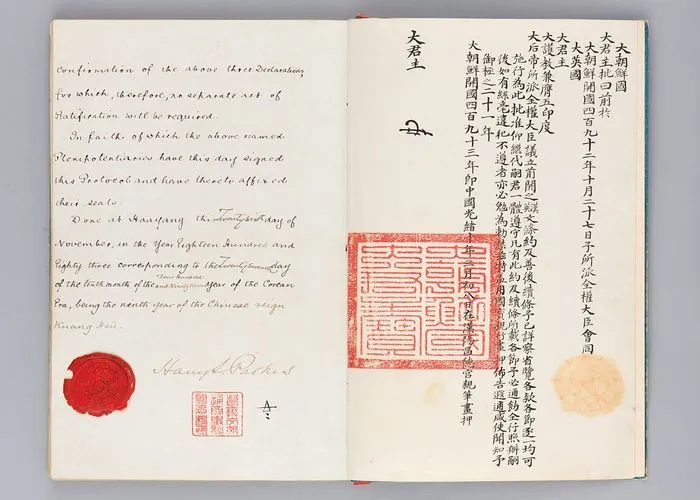 confirmation of the above three Declarations,
for which, therefore, no separate act of
Ratification will be required.
In faith of which the above named
Plenipotentiaries have this day signed
this Protocol and have thereto affixed
their seals.
Done at Hanyang this Twenty sixth day of
November, in the Year Eighteen Hundred and
Eighty three corresponding to the Twenty seventh day
of the tenth month of the four hundred and ninety second year of the Corean
Era, being the ninth year of the Chinese reign
Kuang Hsü.
Harry S. Parkes
大朝鮮國
大君主批曰前於
大朝鮮開國四百九十二年十月二十七日予所派全權大臣會同
大英國
大君主
大護教兼膺五印度
大后帝所派全權大臣議立前開之漢英文條約及善後續條予已詳察省覽各款各節逐一均可
施行為此批准仰繼代嗣君一體遵守凡有此約及續條所載各節予必通飭全行照辦嗣
後如有絲毫違犯不遵者亦必勉為勅法茲特盖用國寶親行畫押佈告遐邇咸使聞知予
御極之二十一年
大朝鮮開國四百九十三年即中國光緒十年三月初八日在漢陽昌德宮親筆畫押
大君主